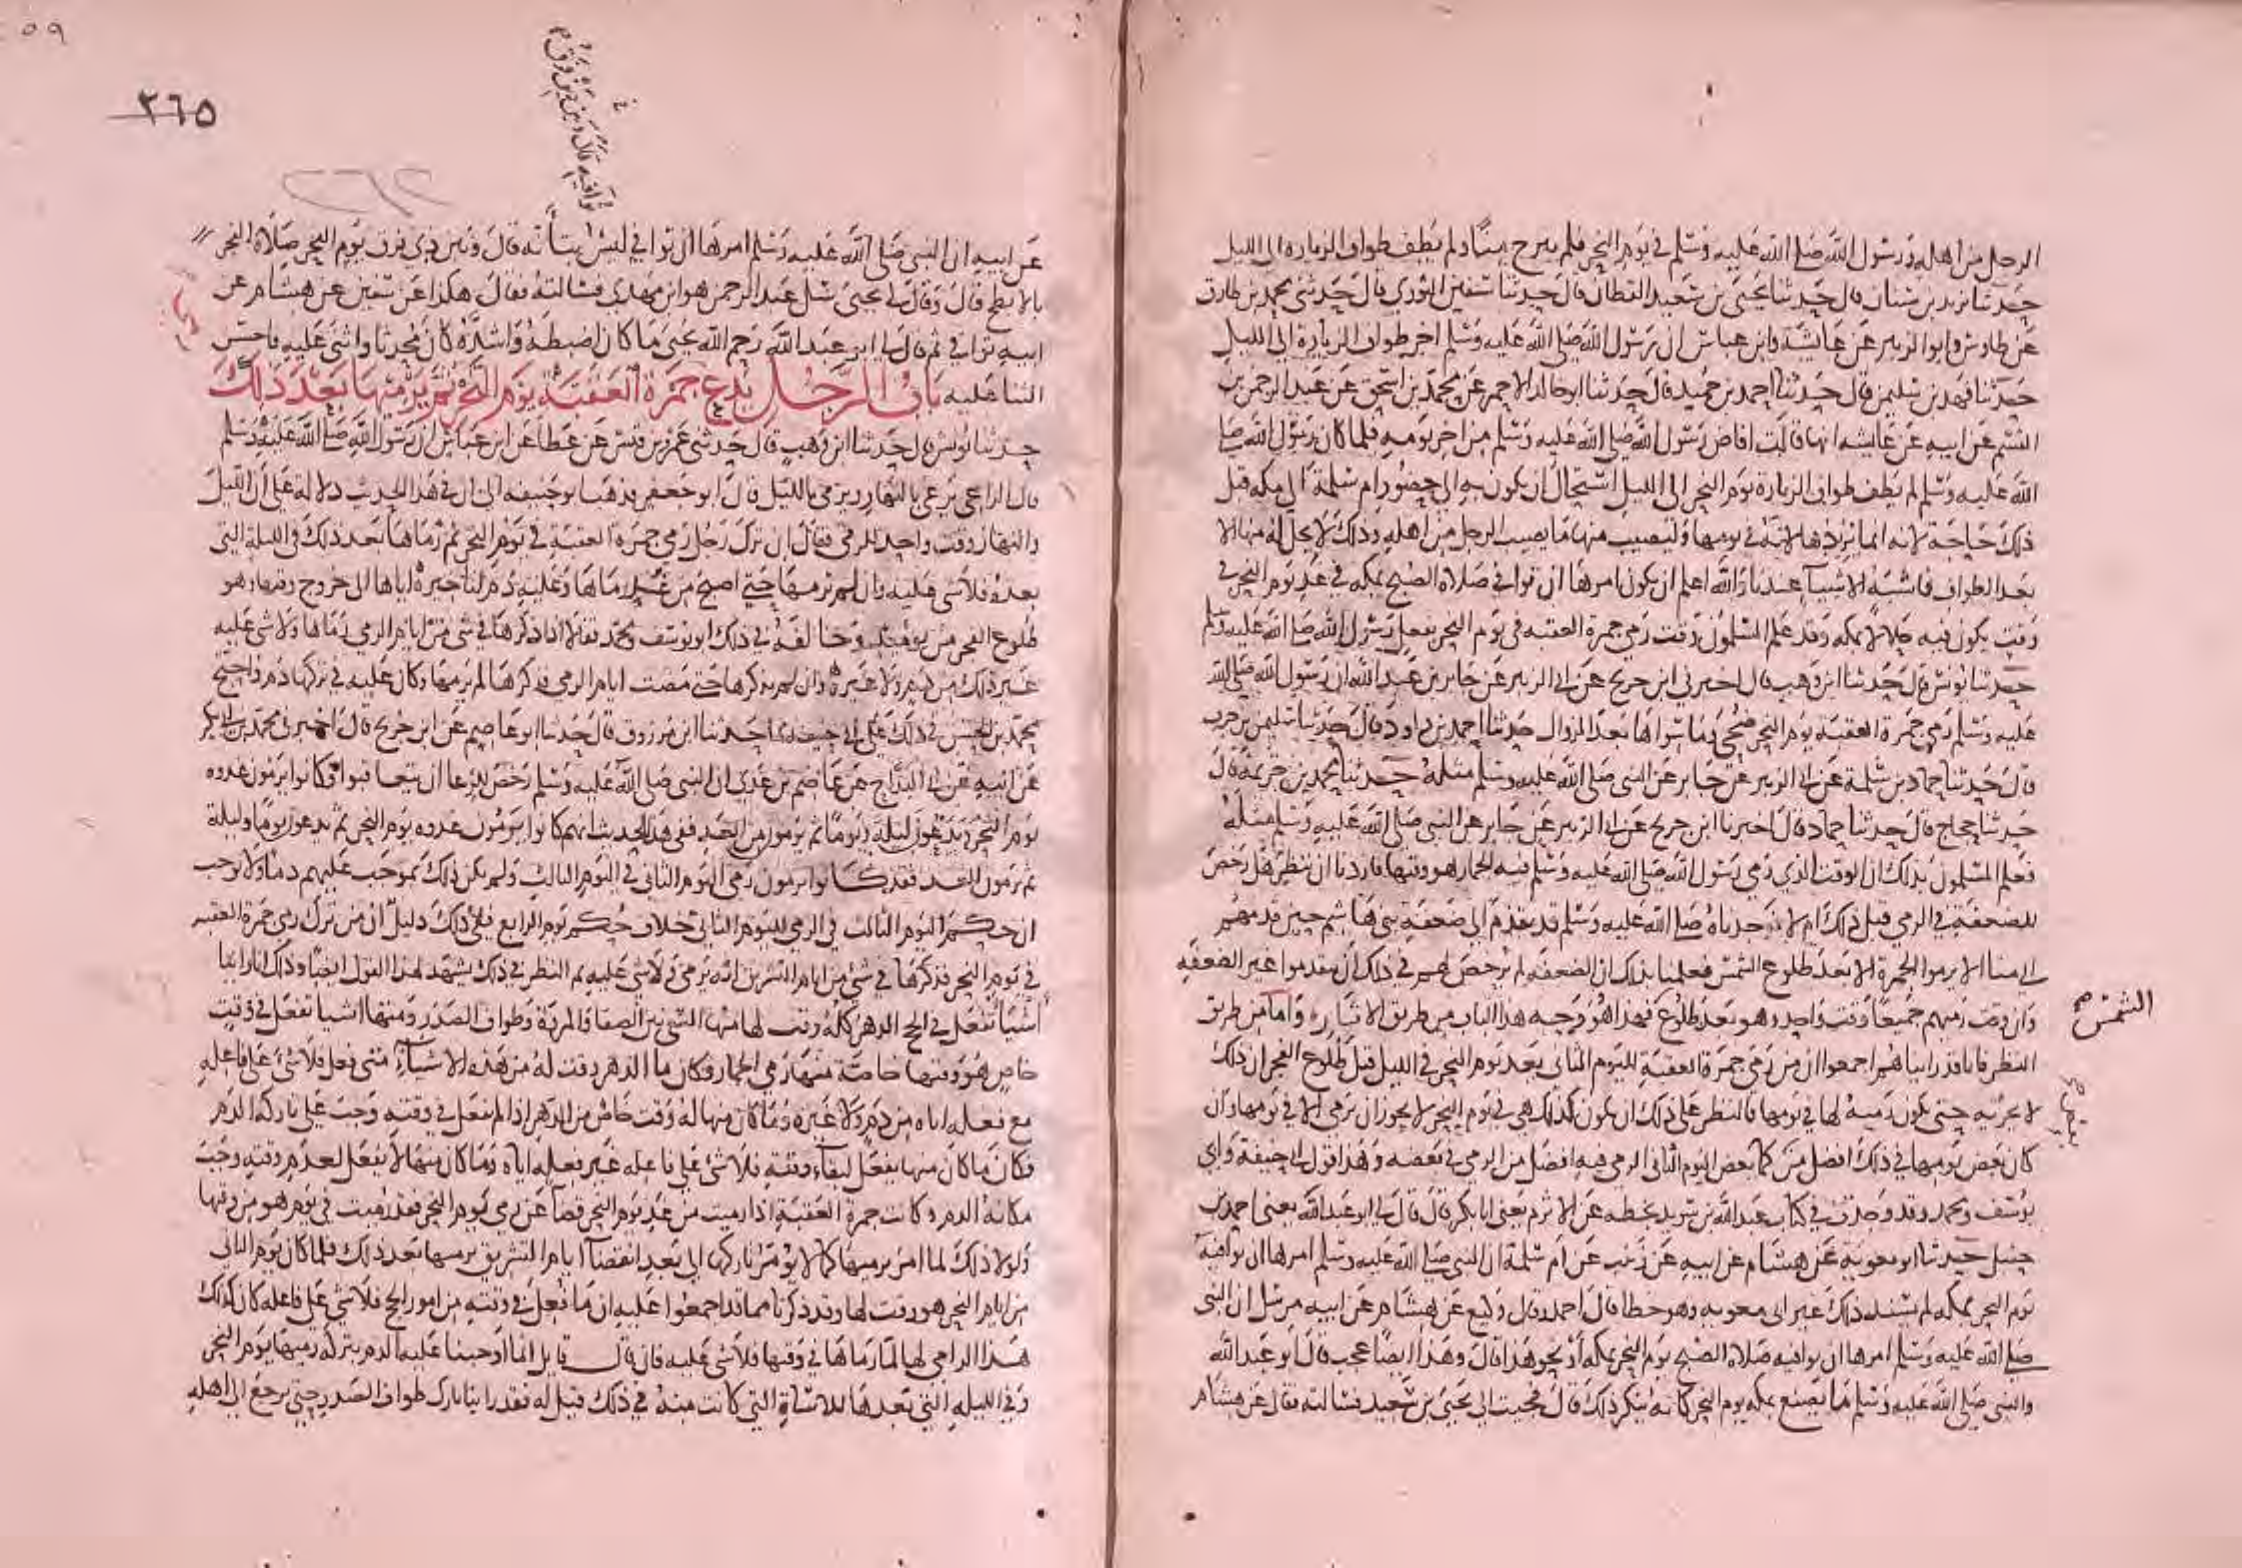 الرجل من اهله ورسول الله صلى الله عليه وسلم في يوم النحر فلم يبرح منا ولم يطف طواف الزيارة الى الليل
حدثنا يزيد بن سنان قال حدثنا يحيى بن سعيد القطان قال حدثنا سفين الثوري قال حدثني محمد بن طارق
عن طاوس وابو الزبير عن عايشة وابن عباس ان رسول الله صلى الله عليه وسلم اخر طواف الزيارة الى الليل
حدثنا فهد بن سليمن قال حدثنا احمد بن حميد قال حدثنا ابو خالد الاحمر عن محمد بن اسحق عن عبد الرحمن بن
القسم عن ابيه عن عايشه انها قالت افاض رسول الله صلى الله عليه وسلم من اخر يومه فلما كان رسول الله صلى
الله عليه وسلم لم يطف طواف الزيارة يوم النحر الى الليل استحال ان يكون به الى حضور ام سلمة الى مكه قبل
ذلك حاجة لانه انما يريدها لانه في يومها وليصيب منها ما يصيب الرجل من اهله وذلك لا يحل له منها الا
بعد الطواف فاشبه الاشيآ عندنا والله اعلم ان يكون امرها ان توافي صلاة الصبح بمكه في غد يوم النحر في
وقت يكون فيه حلالا بمكه وقد علم المسلمون وقت رمي جمرة العقبه في يوم النحر بفعل رسول الله صلى الله عليه وسلم
حدثنا يونس قال حدثنا ابن وهب قال اخبرني ابن جريج عن ابي الزبير عن جابر بن عبد الله ان رسول الله صلى الله
عليه وسلم رمي جمرة العقبة يوم النحر ضحى وما سواها بعد الزوال حدثنا احمد بن داود قال حدثنا سليمن بن حرب
قال حدثنا حماد بن سلمة عن ابي الزبير عن جابر عن النبي صلى الله عليه وسلم مثله حدثنا محمد بن خزيمة قال
حدثنا حجاج قال حدثنا حماد قال اخبرنا ابن جريج عن ابي الزبير عن جابر عن النبي صلى الله عليه وسلم مثله
فعلم المسلمون بذلك ان الوقت الذي رمي رسول الله صلى الله عليه وسلم فيه الجمار هو وقتها فاردنا ان ننظر هل رخص
للضعفة في الرمي قبل ذلك ام لا فوجدناه صلى الله عليه وسلم قد تقدم الى ضعفة بني هاشم حين قدمهم
الى منا الا يرموا الجمرة الا بعد طلوع الشمس فعلمنا بذلك ان الضعفه لم يرخص لهم في ذلك ان يتقدموا غير الضعفه
وان وقت رميهم جميعا وقت واحد وهو بعد طلوع فهذا هو وجه هذا الباب من طريق الاثار وامامن طريق
الشمس
النظر فانا قد راينا هم اجمعوا ان من رمي جمرة العقبة لليوم الثاني بعد يوم النحر في الليل قبل طلوع الفجر ان ذلك
لا يجزيه حتى يكون رميه لها في يومها فالنظر على ذلك ان يكون كذلك هي في يوم النحر لا يجوز ان ترمى الا في يومها وان
كان بعض يومها في ذلك افضل من كما بعض اليوم الثاني الرمي فيه افضل من الرمي في بعضه وهذا قول ابي حنيفة وابي
يوسف ومحمد وقد وجدت في كتاب عبد الله بن سويد بخطه عن الاثرم يعني ابا بكر قال قال لي ابو عبد الله يعني احمد بن
حنبل حدثنا ابو معوية عن هشام عن ابيه عن زينب عن ام سلمة ان النبي صلى الله عليه وسلم امرها ان توافيه
يوم النحر بمكه لم يسند ذلك غير ابي معويه وهو خطا قال احمد وقال وكيع عن هشام عن ابيه مرسل ان النبي
صلى الله عليه وسلم امرها ان توافيه صلاة الصبح يوم النحر بمكه او نحو هذا قال وهذا ايضا عجب قال ابو عبد الله
والنبي صلى الله عليه وسلم ما يصنع بمكه يوم النحر كانه ينكر ذلك قال فجيت الى يحيى بن سعيد فسالته فقال عن هشام
٢٦٥
توافيه قال وبين ذين فرق
عن ابيه ان النبي صلى الله عليه وسلم امرها ان توافي ليس توافيه قال وبين ذي فرق يوم النحر صلاة الفجر
بالابطح قال وقال لي يحيى سل عبد الرحمن هو ابن مهدي فسالته فقال هكذا عن سفين عن هشام عن
ابيه توافي ثم قال لي ابو عبد الله رحم الله يحيى ما كان اضبطه واشده كان محدثا واثنى عليه فاحسن
الثنا عليه باب الرجل يدع جمرة العقبة يوم النحر ثم يرميها بعد ذلك
حدثنا يونس قال حدثنا ابن وهب قال حدثني عمر بن قيس عن عطا عن ابن عباس ان رسول الله صلى الله عليه وسلم
قال الراعي يرعى بالنهار ويرمي بالليل قال ابو جعفر فذهب ابو حنيفه الى ان في هذا الحديث دلالة على ان الليل
والنهار وقت واحد للرمي فقال ان ترك رجل رمي جمرة العقبة في يوم النحر ثم رماها بعد ذلك في الليلة التي
بعده فلا شى عليه وان لم يرمها حتى اصبح من غد رماها وعليه دم لتاخيره اياها الى خروج وقتها وهو
طلوع الفجر من يومئذ وخالفه في ذلك ابو يوسف ومحمد فقالا اذا ذكرها في شي من ايام الرمي رماها ولا شي عليه
غير ذلك من دم ولا غيره وان لم يذكرها حتى مضت ايام الرمي فذكرها لم يرمها وكان عليه في تركها دم واحتج
محمد بن الحسن في ذلك على ابي حنيفة بما حدثنا ابن مرزوق قال حدثنا ابو عاصم عن ابن جريج قال اخبرني محمد بن ابي بكر
عن ابيه عن ابي البداح عن عاصم بن عدي ان النبي صلى الله عليه وسلم رخص للرعا ان يتعاقبوا وكانوا يرمون غدوه
يوم النحر ويدعون ليلة ويوما ثم يرمون من الغد ففي هذا الحديث انهم كانوا يرمون غدوه يوم النحر ثم يدعون يوما وليلة
ثم يرمون للغد فقد كانوا يرمون رمي اليوم الثاني في اليوم الثالث ولم يكن ذلك بموجب عليهم دما ولا يوجب
ان حكم اليوم الثالث في الرمي لليوم الثاني خلاف حكم يوم الرابع ففي ذلك دليل ان من ترك رمي جمرة العقبه
في يوم النحر فذكرها في شي من ايام التشريق انه يرمي ولا شي عليه ثم النظر في ذلك يشهد لهذا القول ايضا وذلك انا راينا
اشيا تفعل في الحج الدهر كله وقت لها منها السعي بين الصفا والمروة وطواف الصدر ومنها اشيا تفعل في وقت
خاص هو وقتها خاصة منها رمي الجمار فكان ما الدهر وقت له من هذه الاشياء متى فعل فلا شى على فاعله
مع فعله اياه من دم ولا غيره وما كان منها له وقت خاص من الدهر اذا لم يفعل في وقته وجب على تاركه الدم
فكان ما كان منها يفعل لبقاء وقته فلا شى على فاعله غير فعله اياه وما كان منها لا يفعل لعدم وقته وجب
مكانه الدم وكانت جمرة العقبة اذا رميت من غد يوم النحر قضا عن رمي يوم النحر فقد رميت في يوم هو من وقتها
ولولا ذلك لما امر برميها كما لا يومر تاركها الى بعد انقضآ ايام التشريق برميها بعد ذلك فلما كان يوم الثاني
من ايام النحر هو وقت لها وقد ذكرنا مما قد اجمعوا عليه ان ما فعل في وقته من امور الحج فلا شي على فاعله كان كذلك
هذا الرامي لها لما رماها في وقتها فلا شي عليه فان قال قايل انما اوجبنا عليه الدم بتركه رميها يوم النحر
وفي الليله التي بعدها للاساة التي كانت منه في ذلك قيل له فقد راينا تارك طواف الصدر حتى يرجع الى اهله